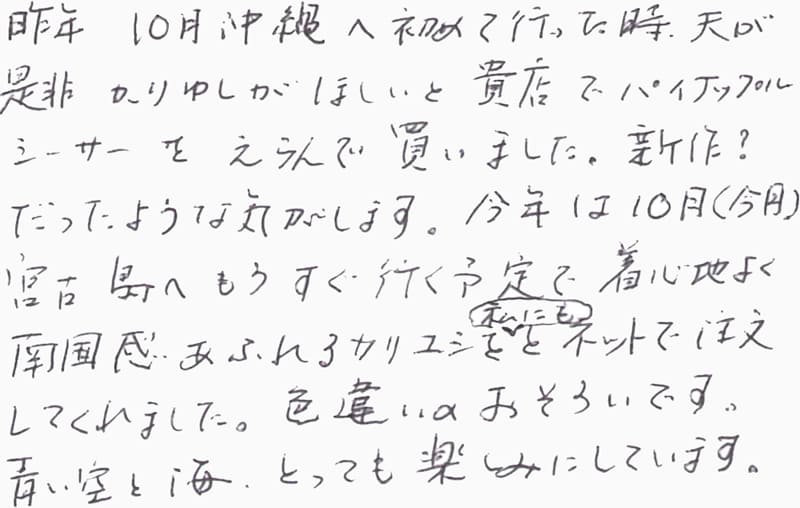 昨年 10月沖縄へ初めて行った時、夫が
是非 かりゆしがほしいと 貴店でパイナップル
シーサーを えらんで 買いました。新作?
だったような気がします。今年は10月(今月)
宮古島へもうすぐ行く予定で 着心地よく
南国感 あふれるカリユシを私にもと ネットで注文
してくれました。色違いのおそろいです。
青い空と海、とっても楽しみにしています。